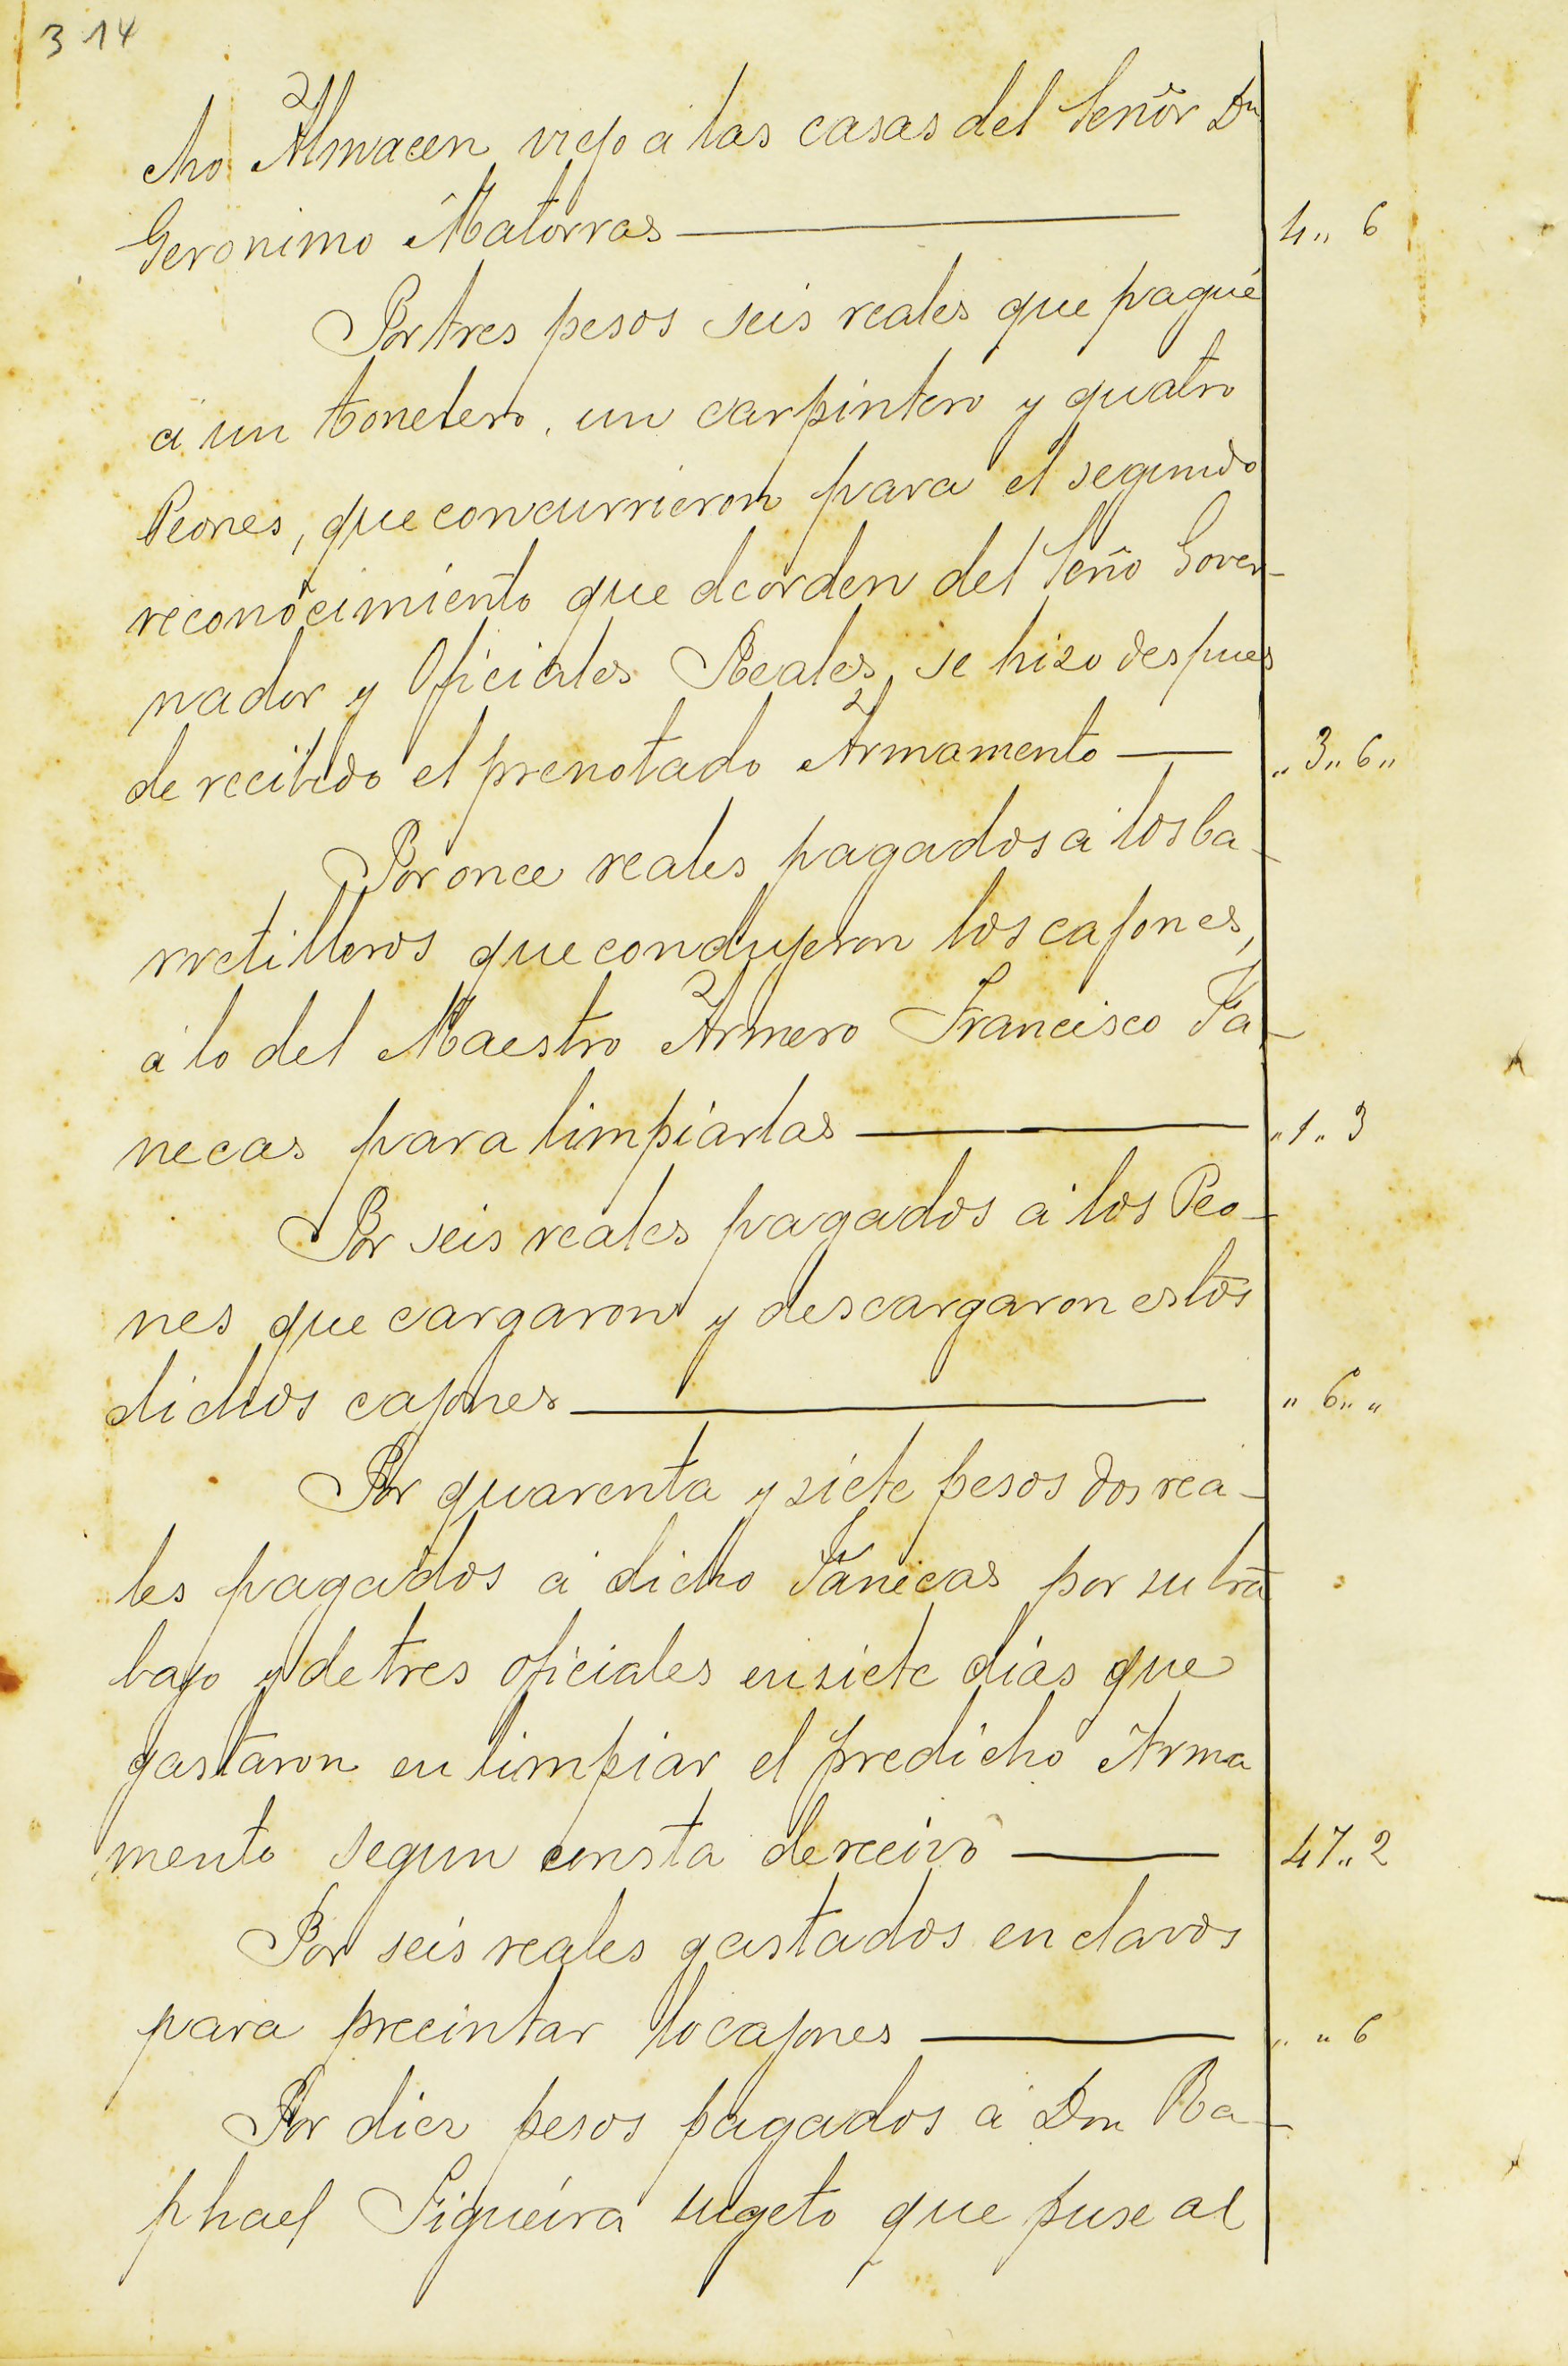 314
cho Almacen viejo á las casas del Señor Dn
Geronimo Matorras 4,, 6
Por tres pesos seis reales que pagué
á un tonelero, un carpintero y quatro
Peones, que concurrieron para el segundo
reconocimiento que de orden del Seño Gover-
nador y Oficiales Reales, se hizo despues
de recibido el prenotado Armamento ,,3,,6,,
Por once reales pagados á los ba-
rretilleros que condujeron los cajones,
á lo del Maestro Armero Francisco Fa-
necas para limpiarlas ,,1,,3
Por seis reales pagados á los Peo-
nes que cargaron y descargaron estos
dichos cajones ,, 6,, ,,
Por quarenta y siete pesos dos rea-
les pagados á dicho Fanecas por su tra
bajo y de tres oficiales en siete dias que
gastaron en limpiar el predicho Arma
mento segun consta de recivo 47,,2
Por seis reales gastados en clavos
para precintar lo cajones ,, ,,6
Por diez pesos pagados á Don Ra-
phael Figueira sugeto que puse al